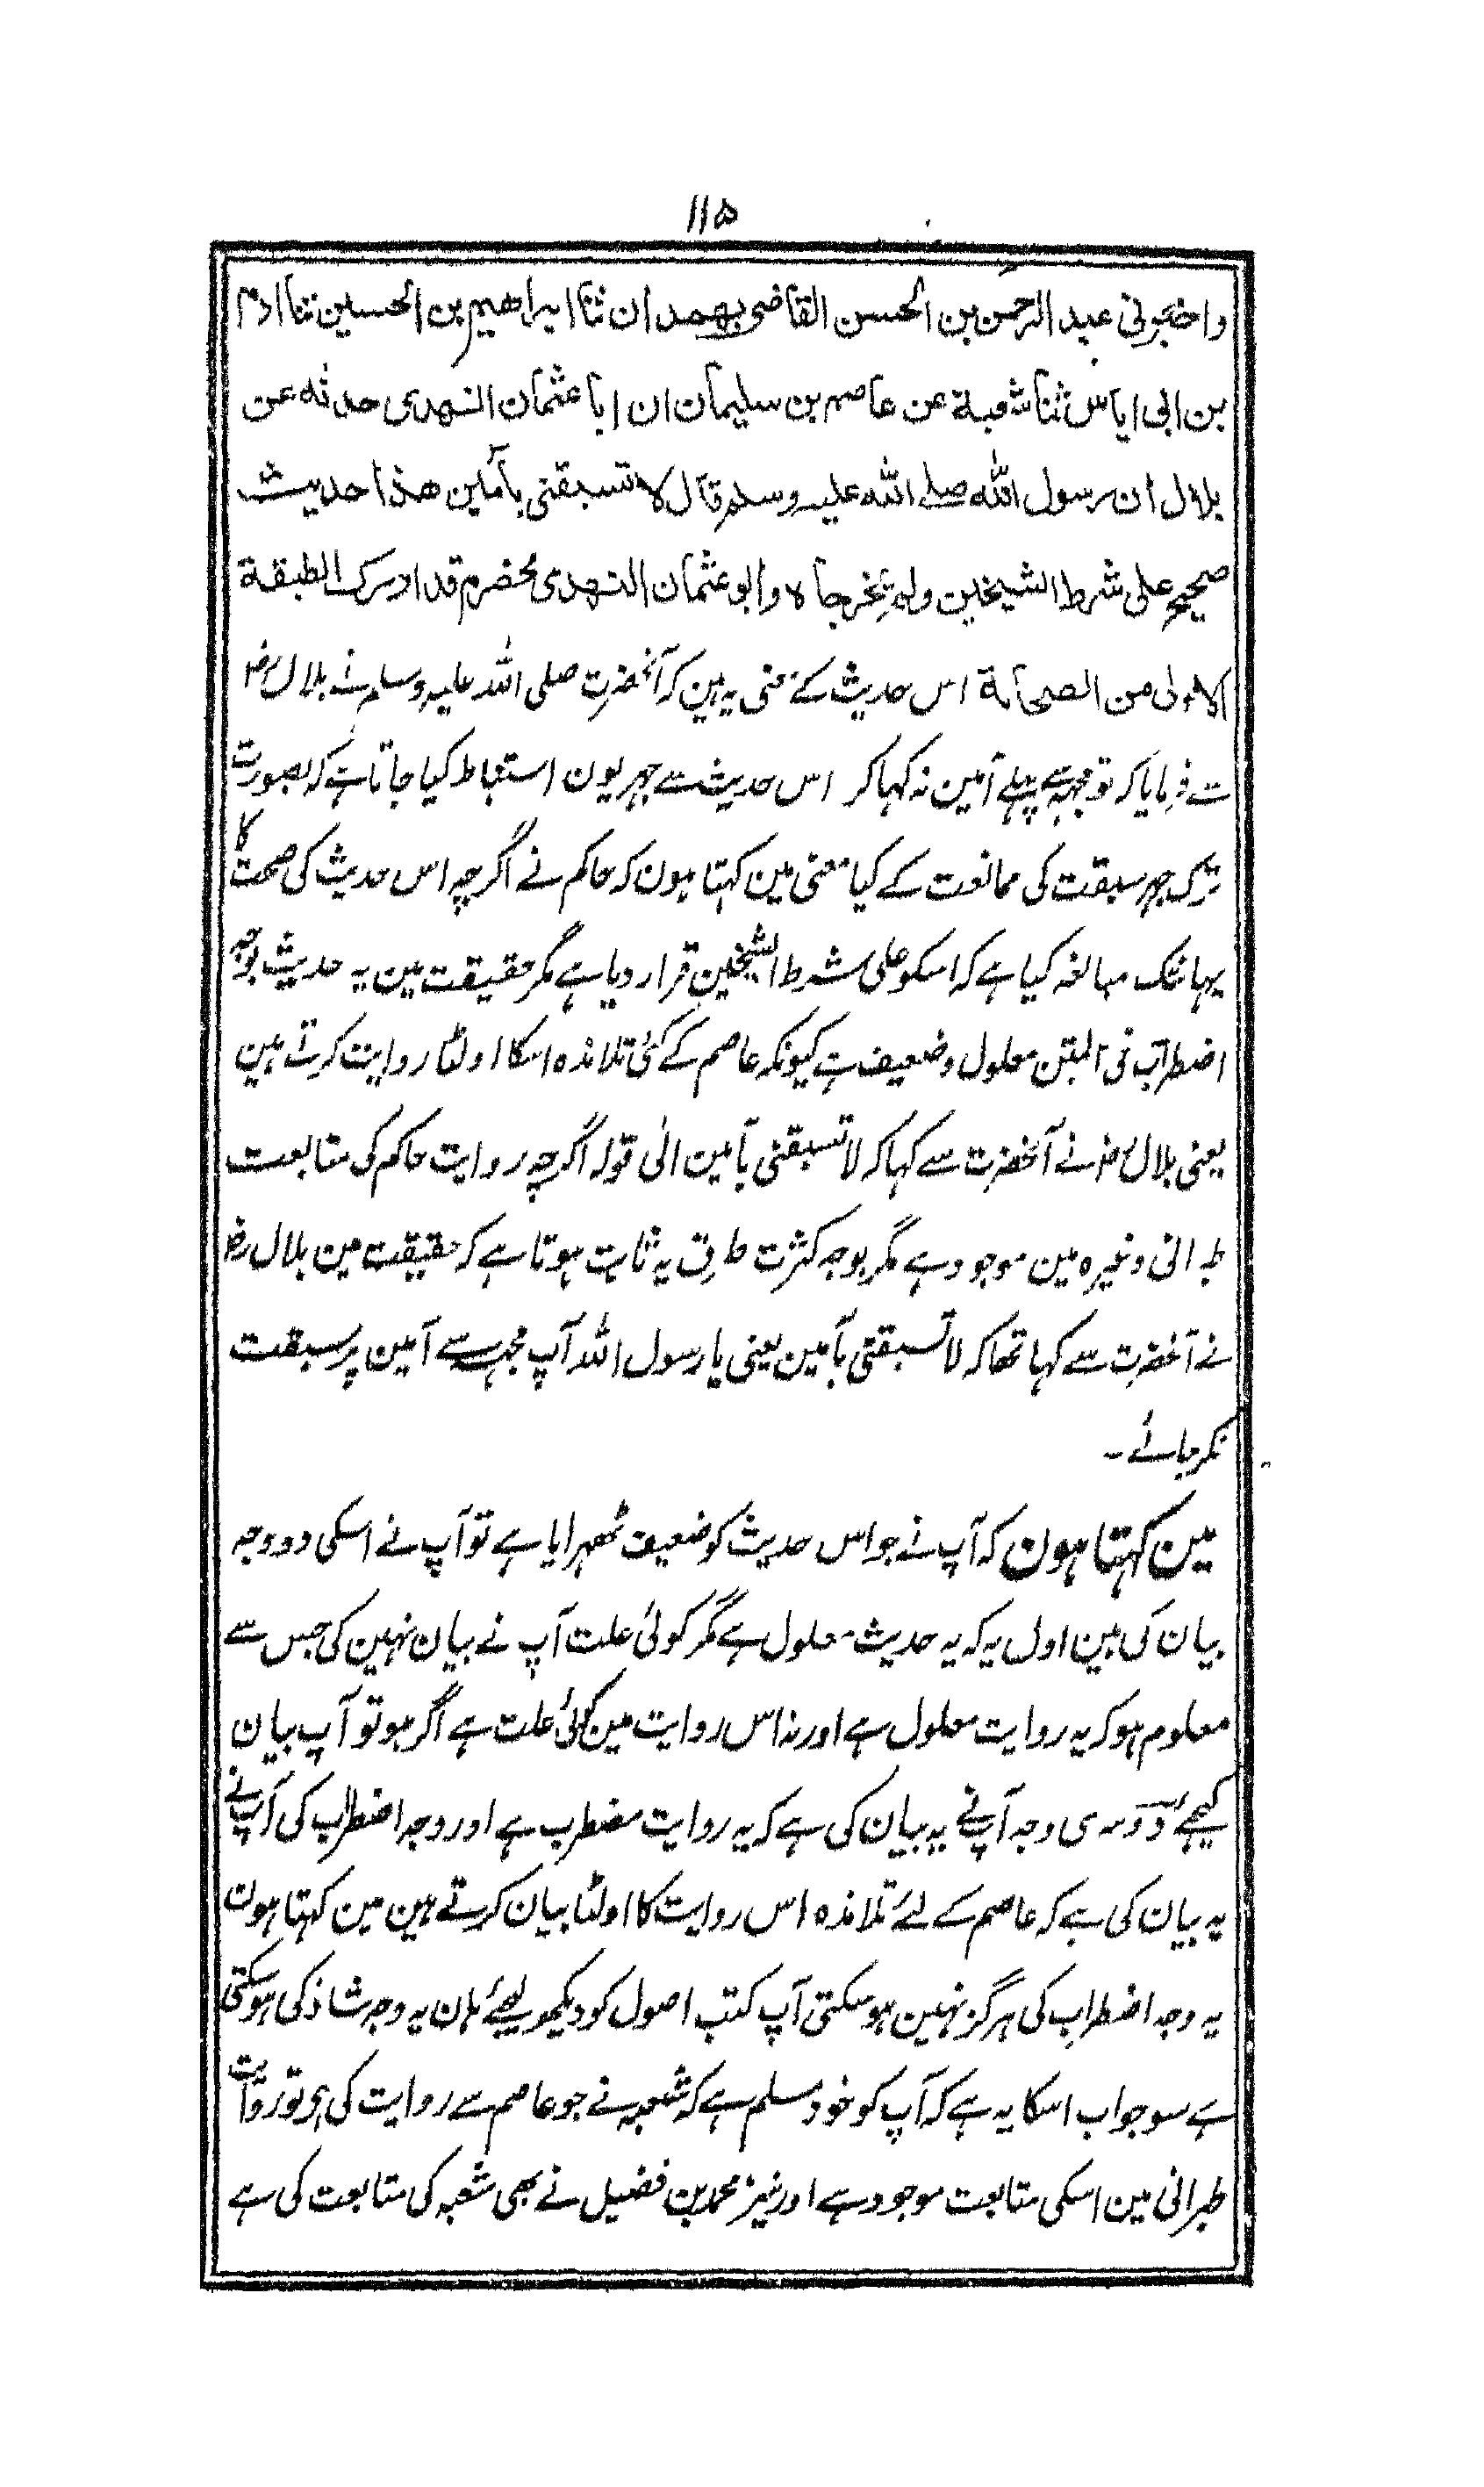 ۱۱۵
واخبرنی عبد الرحمن بن الحسن القاضی بهمدان ثنا ابراهیم بن الحسین ثنا ادم
بن ابی ایاس ثنا شعبة عن عاصم بن سلیمان ان ابا عثمان النهدی حدثه عن
بلال ان رسول الله صلی الله علیه وسلم قال لا تسبقنی بآمین هذا حدیث
صحیح علی شرط الشیخین ولم یخرجاه وابو عثمان النهدی مخضرم قد ادرک الطبقة
الاولی من الصحابة اس حدیث کے معنی یہ ہین کہ آنحضرت صلی اللہ علیہ وسلم نے بلال رض
سے فرمایا کہ تو مجہہ سے پہلے آمین نہ کہا کر اس حدیث سے جہر یون استنباط کیا جاتا ہے کہ بصورت
ترک جہر سبقت کی ممانعت کے کیا معنی مین کہتا ہون کہ حاکم نے اگرچہ اس حدیث کی صحت کا
یہانتک مبالغہ کیا ہے کہ اسکو علی شرط الشیخین قرار دیا ہے مگر حقیقت مین یہ حدیث بوجہ
اضطراب فی المتن معلول وضعیف ہے کیونکہ عاصم کے کئی تلامذہ اسکا اولٹا روایت کرتے ہین
یعنی بلال رض نے آنحضرت سے کہا کہ لا تسبقنی بآمین الی قولہ اگرچہ روایت حاکم کی متابعت
طبرانی وغیرہ مین موجود ہے مگر بوجہ کثرت طرق یہ ثابت ہوتا ہے کہ حقیقت مین بلال رض
نے آنحضرت سے کہا تھا کہ لا تسبقنی بآمین یعنی یا رسول اللہ آپ مجہہ سے آمین پر سبقت
نکر جائے۔
مین کہتا ہون کہ آپ نے جو اس حدیث کو ضعیف ٹھہرایا ہے تو آپ نے اسکی دو وجہ
بیان کی ہین اول یہ کہ یہ حدیث معلول ہے مگر کوئی علت آپ نے بیان نہین کی جس سے
معلوم ہو کہ یہ روایت معلول ہے اور نہ اس روایت مین کوئی علت ہے اگر ہو تو آپ بیان
کیجئے دوسری وجہ آپنے یہ بیان کی ہے کہ یہ روایت مضطرب ہے اور وجہ اضطراب کی آپنے
یہ بیان کی ہے کہ عاصم کے لئے تلامذہ اس روایت کا اولٹا بیان کرتے ہین مین کہتا ہون
یہ وجہ اضطراب کی ہرگز نہین ہوسکتی آپ کتب اصول کو دیکھ لیجئے ہان یہ وجہ شاذ کی ہوسکتی
ہے سو جواب اسکا یہ ہے کہ آپ کو خود مسلم ہے کہ شعبہ نے جو عاصم سے روایت کی ہی تو روایت
طبرانی مین اسکی متابعت موجود ہے اور نیز محمد بن فضیل نے بھی شعبہ کی متابعت کی ہے